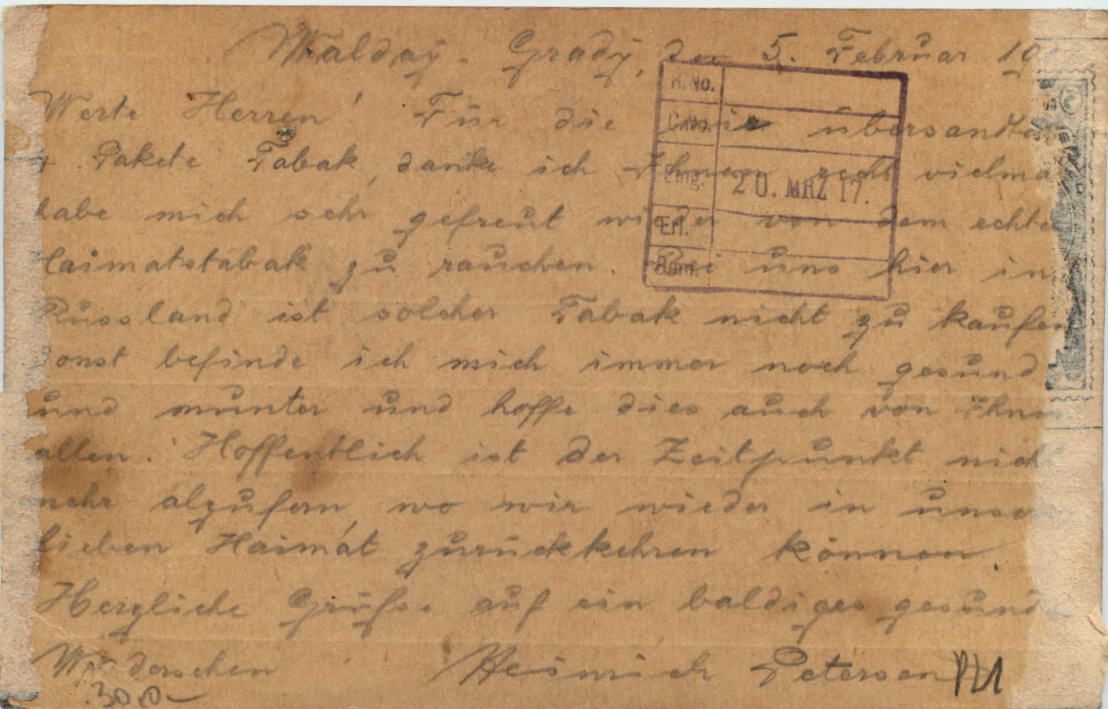 Walday-Grady, den 5. Februar 19
Werte Herren! Für die mir übersandten
4 Pakete Tabak, danke ich Ihnen recht vielmal
habe mich sehr gefreut wieder von dem echten
Haimatstabak zu rauchen. Bei uns hier in
Russland ist solcher Tabak nicht zu kaufen
Sonst befinde ich mich immer noch gesund
und munter und hoffe dies auch von Ihnen
allen. Hoffentlich ist der Zeitpunkt nicht
mehr alzufern, wo wir wieder in unsere
lieben Haimat zurückkehren können.
Herzliche Grüße auf ein baldiges gesundes
Wiedersehen Heinrich Petersen
K.No.
C.No.
Eing. 20. MRZ 17.
Erl.